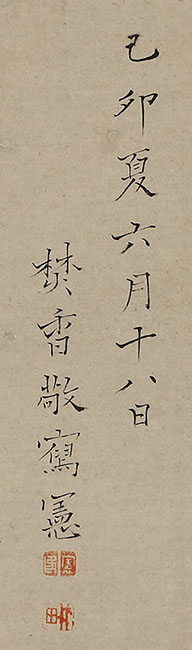 己卯夏六月十八日
焚香敬寫憲